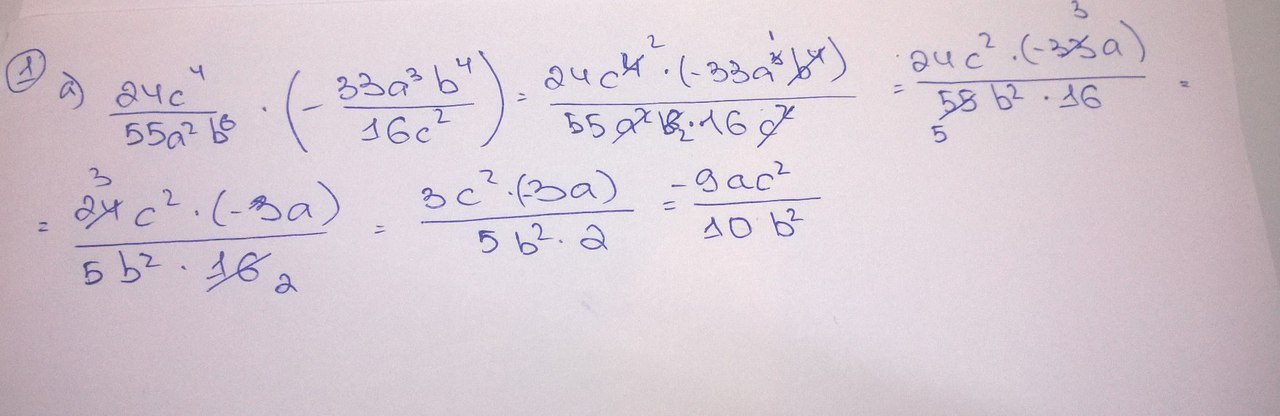 ① a) 24c⁴/55a²b⁶ · (-33a³b⁴/16c²) = 24c⁴ ² · (-33a³ ¹b⁴)/55a²b⁶₂ · 16c² = 24c² · (-33 ³a)/55 ₅b² · 16 =
= 24 ³c² · (-3a)/5b² · 16 ₂ = 3c² · (-3a)/5b² · 2 = -9ac²/10b²